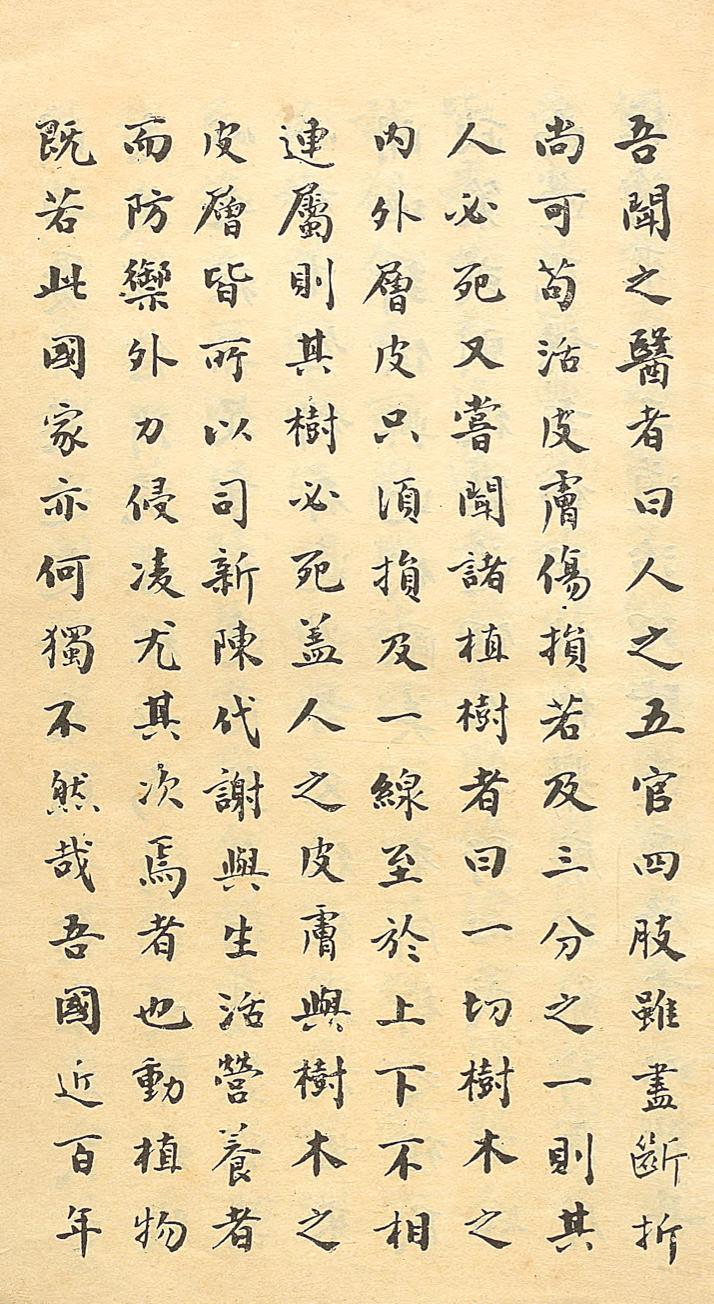 吾聞之醫者曰人之五官四肢雖盡斷折
尚可苟活皮膚傷損若及三分之一則其
人必死又嘗聞諸植樹者曰一切樹木之
內外層皮只須損及一線至於上下不相
連屬則其樹必死盖人之皮膚與樹木之
皮層皆所以司新陳代謝與生活營養者
而防禦外力侵凌尤其次焉者也動植物
既若此國家亦何獨不然哉吾國近百年